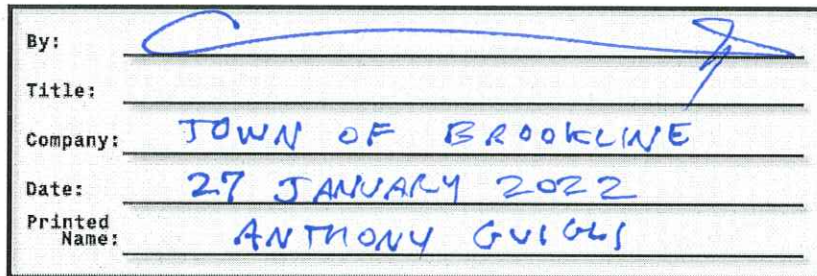 By:
Title:
Company: TOWN OF BROOKLINE
Date: 27 JANUARY 2022
Printed
Name: ANTHONY